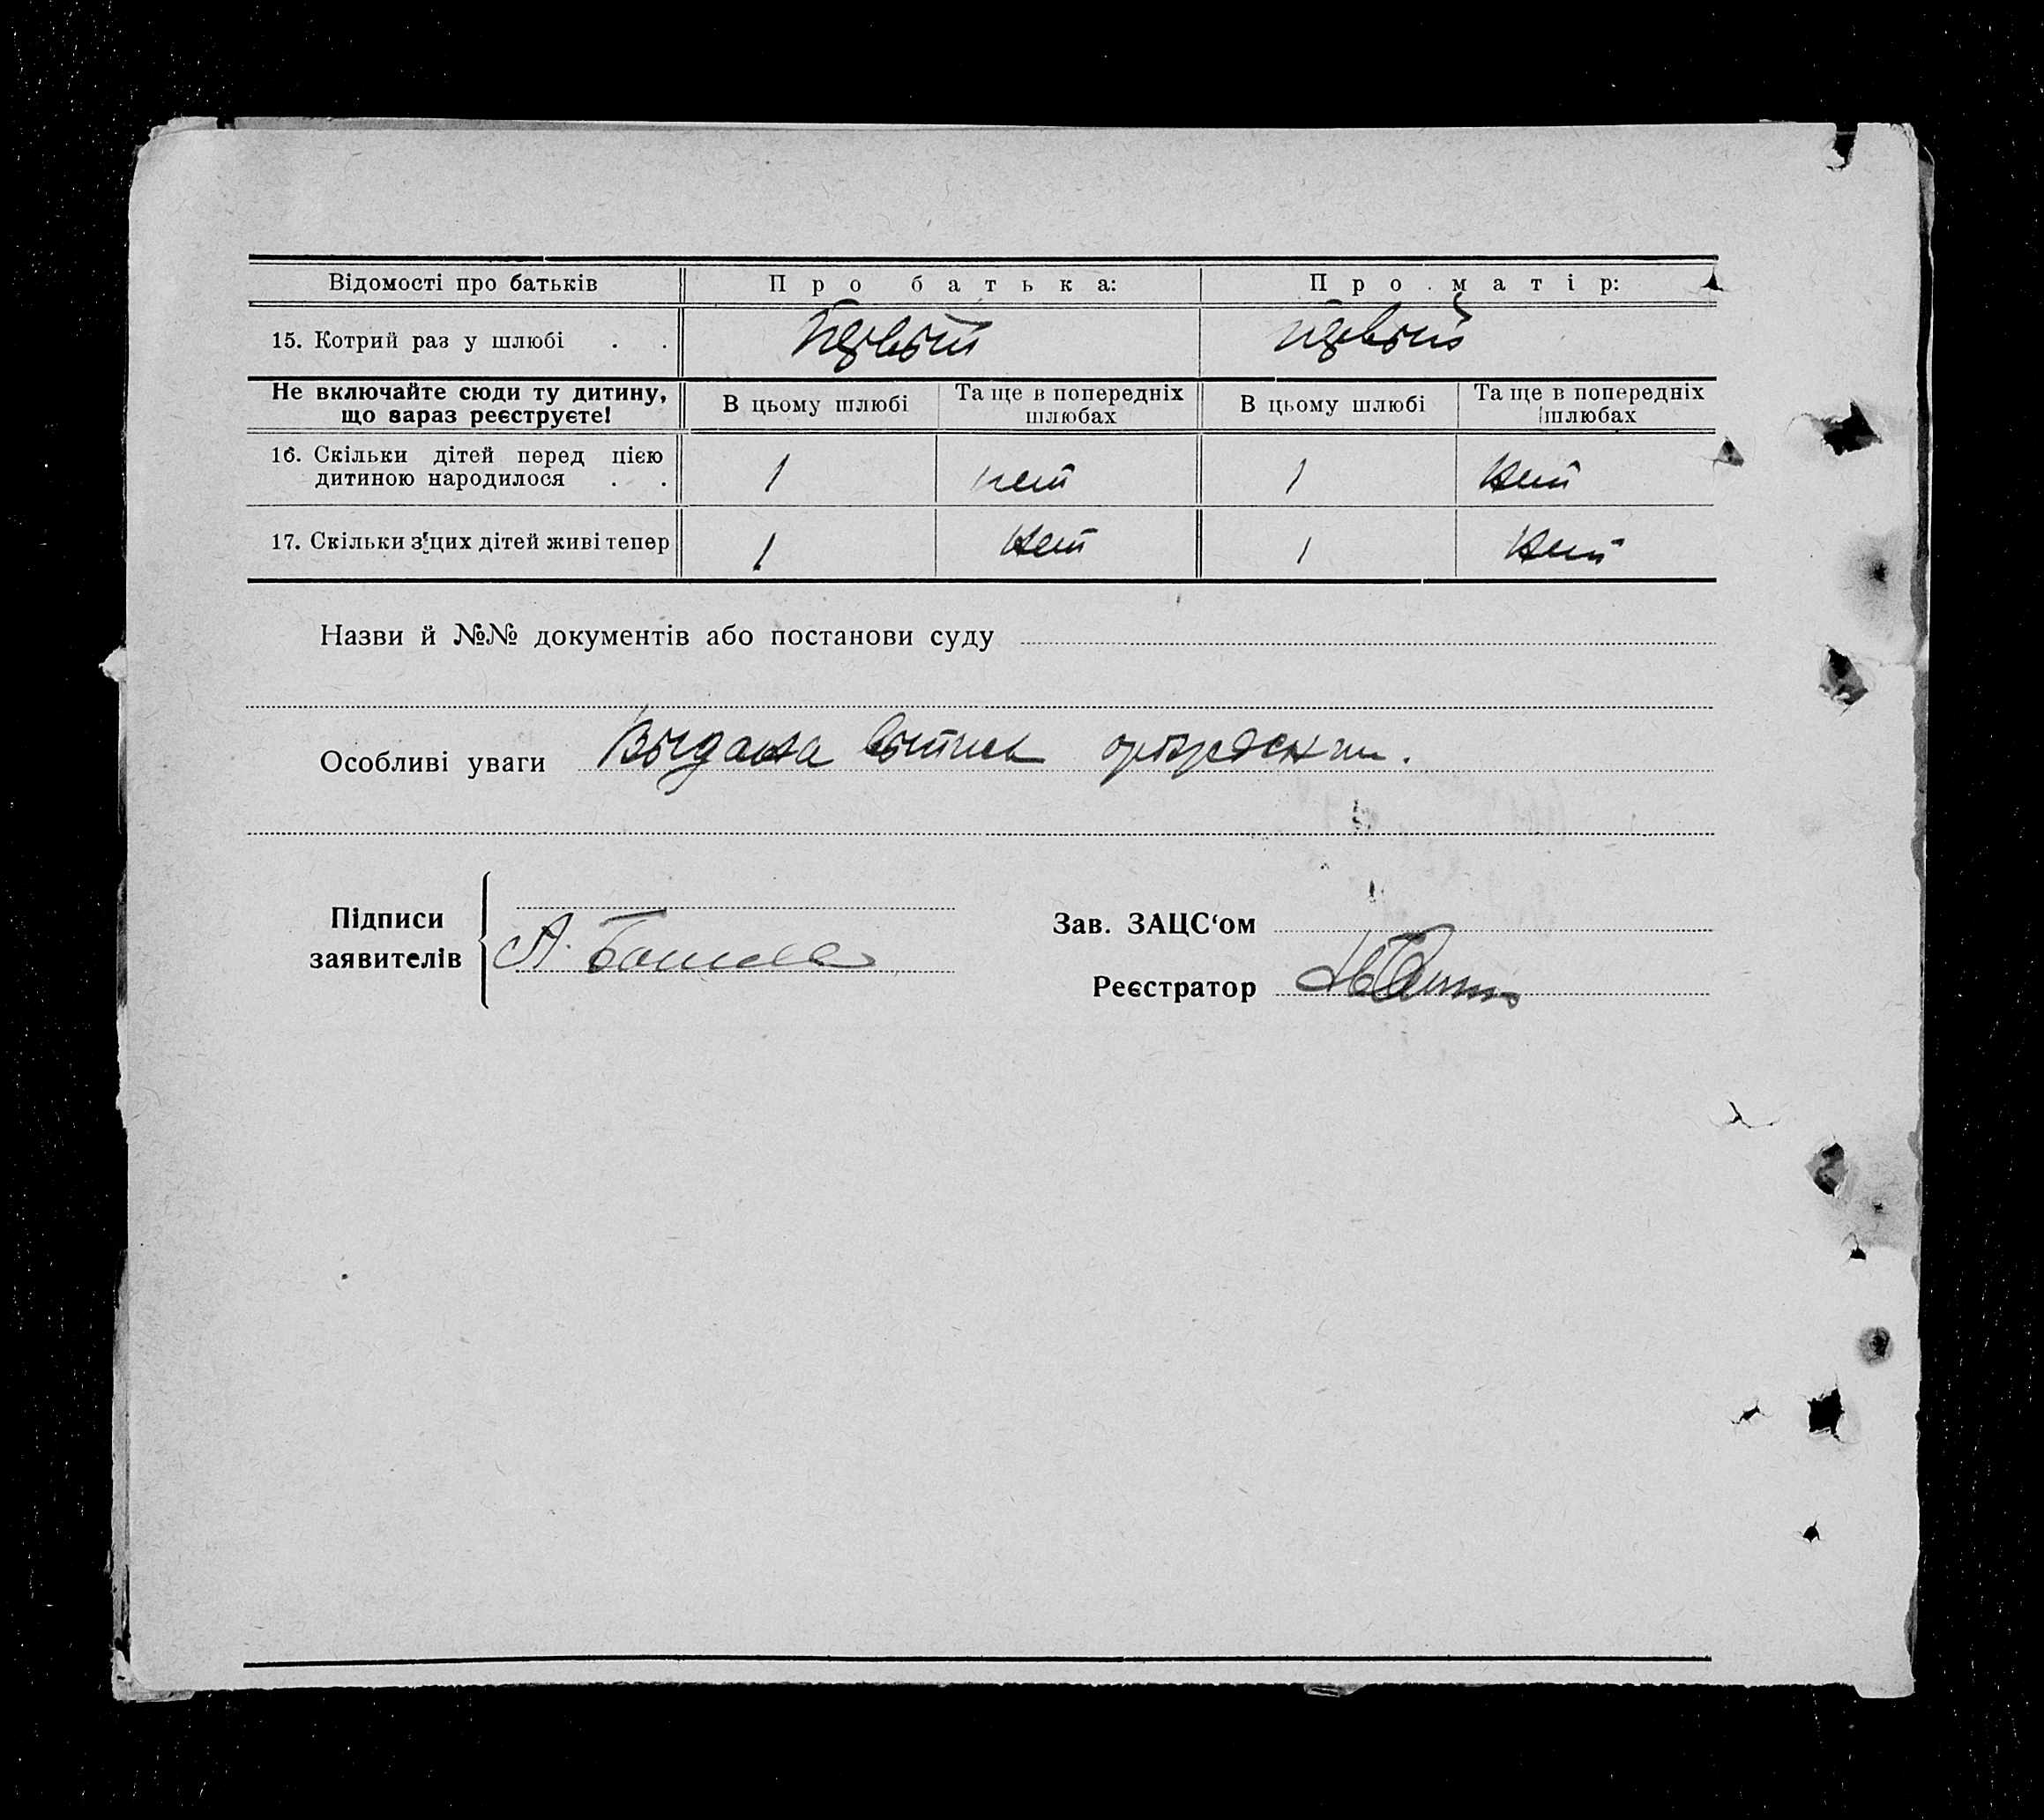 Відомості про батьків Про батька: Про матір:
15. Котрий раз у шлюбі . . Первый первый
Не включайте сюди ту дитину, що зараз реєструєте! В цьому шлюбі Та ще в попередніх шлюбах В цьому шлюбі Та ще в попередніх шлюбах
16. Скільки дітей перед цією
дитиною народилося . . 1 нет 1 нет
17. Скільки з цих дітей живі тепер 1 нет 1 нет
Назви й №№ документів або постанови суду
Особливі уваги Выдана выпись
Підписи
заявителів А.
Зав. ЗАЦС‘ом
Реєстратор